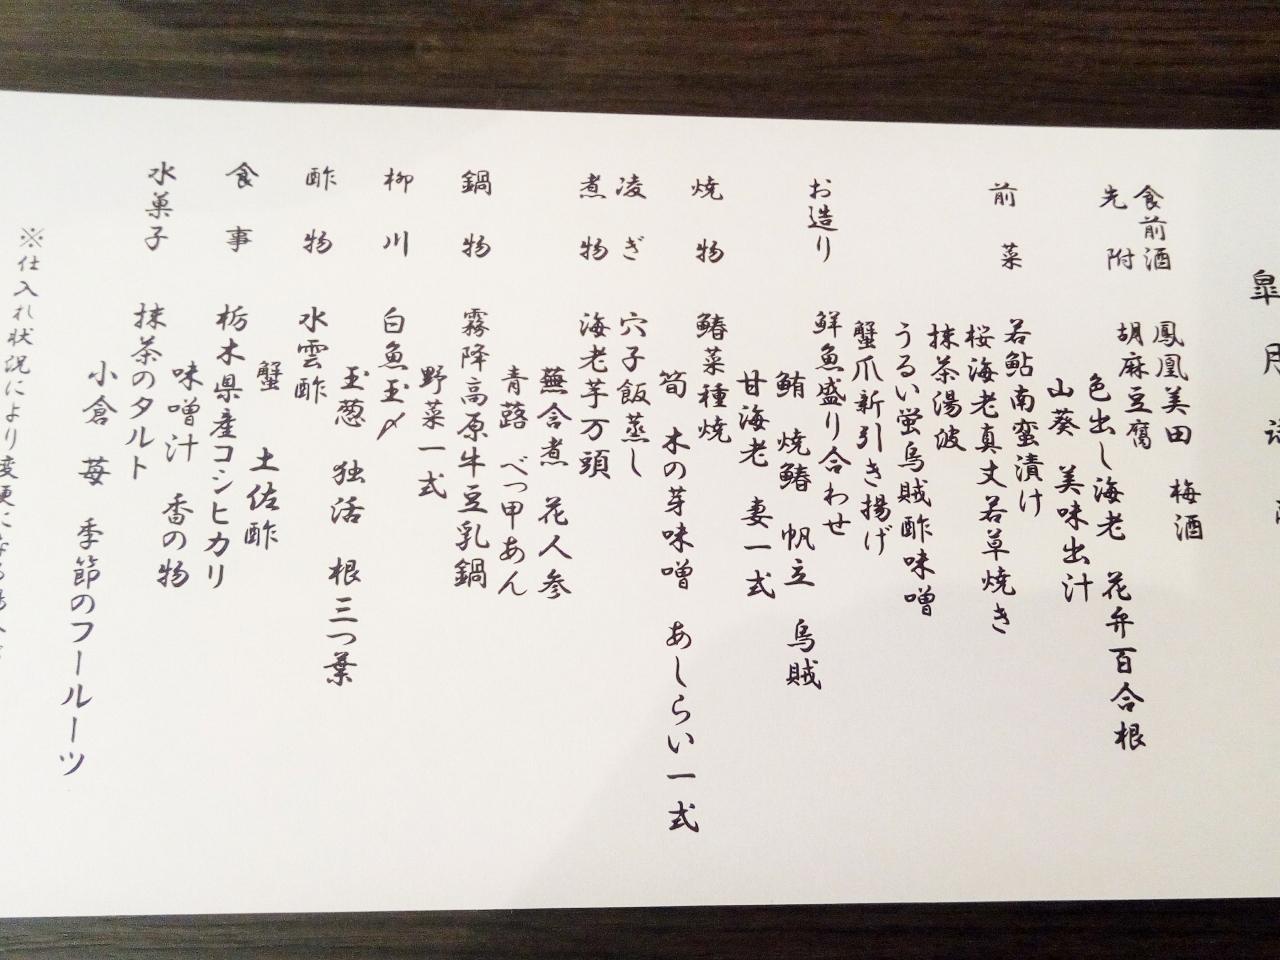 皐月
食前酒　鳳凰美田　梅酒
先附　胡麻豆腐
色出し海老　花弁百合根
山葵　美味出汁
前菜　若鮎南蛮漬け
桜海老真丈若草焼き
抹茶湯波
うるい蛍烏賊酢味噌
蟹爪新引き揚げ
お造り　鮮魚盛り合わせ
鮪　焼鰆　帆立　烏賊
甘海老　妻一式
焼物　鰆菜種焼
筍　木の芽味噌　あしらい一式
凌ぎ　穴子飯蒸し
煮物　海老芋万頭
蕪含煮　花人参
青蕗　べっ甲あん
鍋物　霧降高原牛豆乳鍋
野菜一式
柳川　白魚玉〆
玉葱　独活　根三つ葉
酢物　水雲酢
蟹　土佐酢
食事　栃木県産コシヒカリ
味噌汁　香の物
水菓子　抹茶のタルト
小倉　苺　季節のフールーツ
※仕入れ状況により変更になる